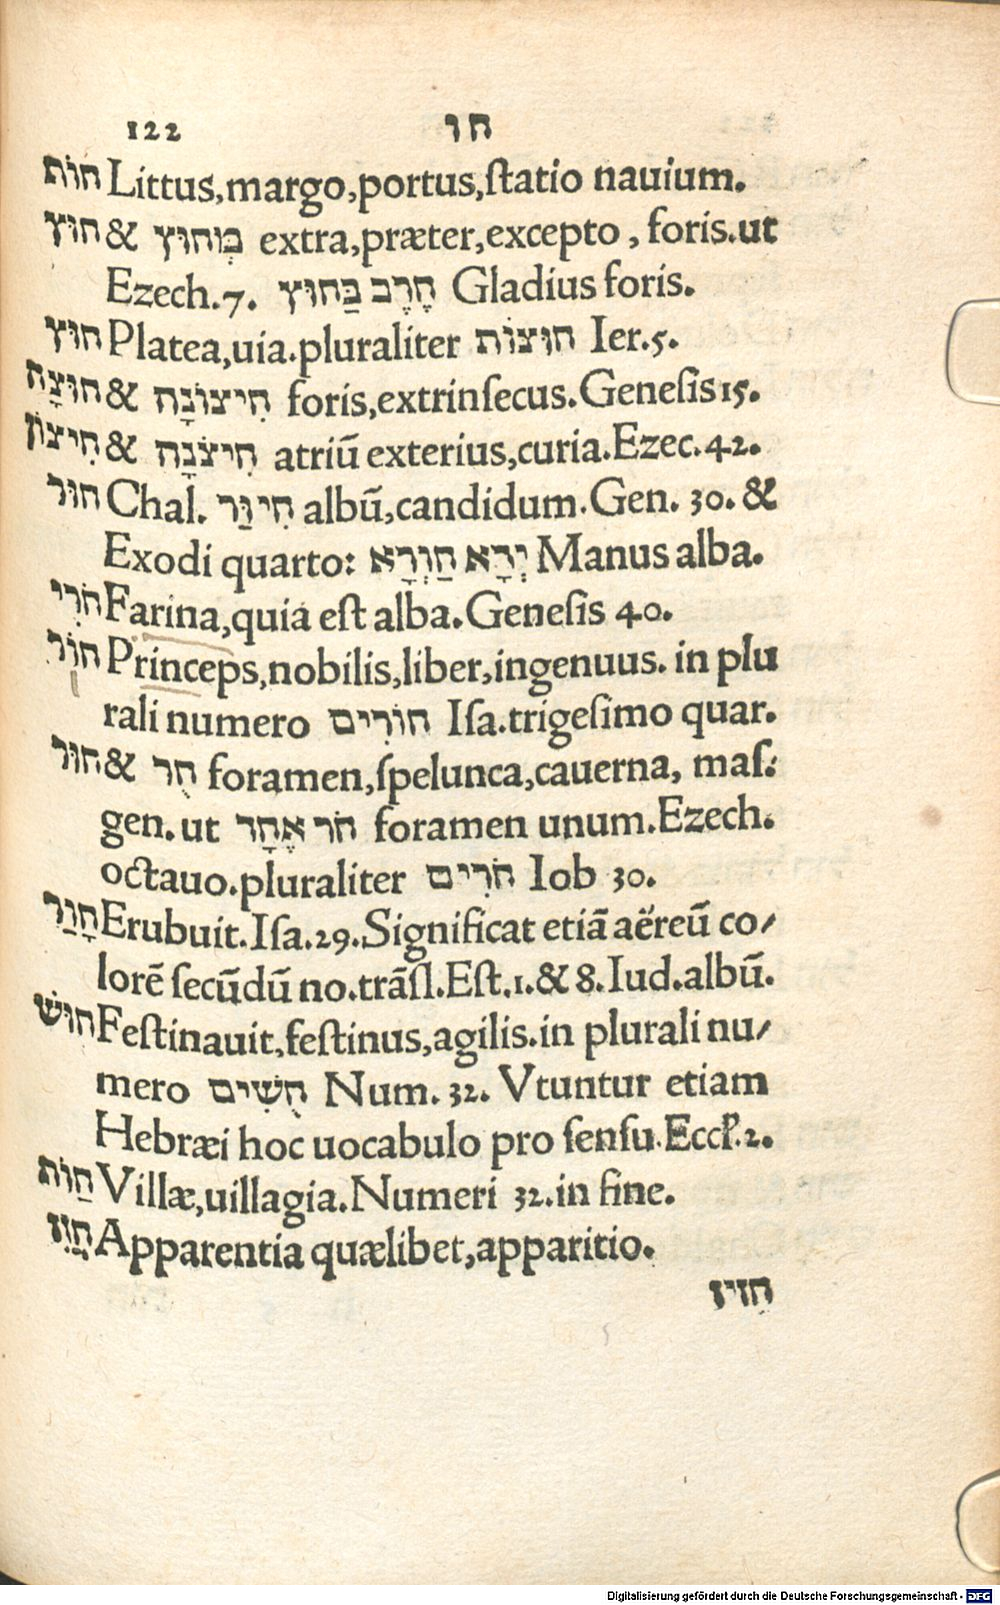 122 חו
חוֹת Littus,margo,portus,ſtatio nauium.
חוּץ & מְחוּץ extra,præter,excepto, foris.ut
Ezech.7. חֶרֶב בַּחוּץ Gladius foris.
חוּץ Platea,uia.pluraliter חוּצוֹת Ier.5.
חוּצָה & חִיצוֹנָה foris,extrinſecus.Geneſis 15.
חִיצוֹן & חִיצֹנָה atriũ exterius,curia.Ezec.42.
חוּר Chal. חִיוַּר albũ,candidum.Gen. 30. &
Exodi quarto: יְדָא חַוְרָא Manus alba.
חֹרִי Farina,quia eſt alba.Geneſis 40.
חוֹר Princeps,nobilis,liber,ingenuus. in plu
rali numero חוֹרִים Iſa.trigeſimo quar.
חוּר & חֻר foramen,ſpelunca,cauerna, maſ.
gen.ut חֹר אֶחָד foramen unum.Ezech.
octauo.pluraliter חֹרִים Iob 30.
חָוַר Erubuit.Iſa.29.Significat etiã aëreũ co/
lorẽ ſecũdũ no.trãſl.Eſt.1.& 8.Iud.albũ.
חוּשׁ Feſtinauit,feſtinus,agilis.in plurali nu/
mero חֻשִׁים Num.32. Vtuntur etiam
Hebræi hoc uocabulo pro ſenſu.Eccl.2.
חַוֹּת Villæ,uillagia.Numeri 32.in fine.
חֱזוּ Apparentia quælibet,apparitio.
חזיז
Digitalisierung gefördert durch die Deutsche Forschungsgemeinschaft - DFG